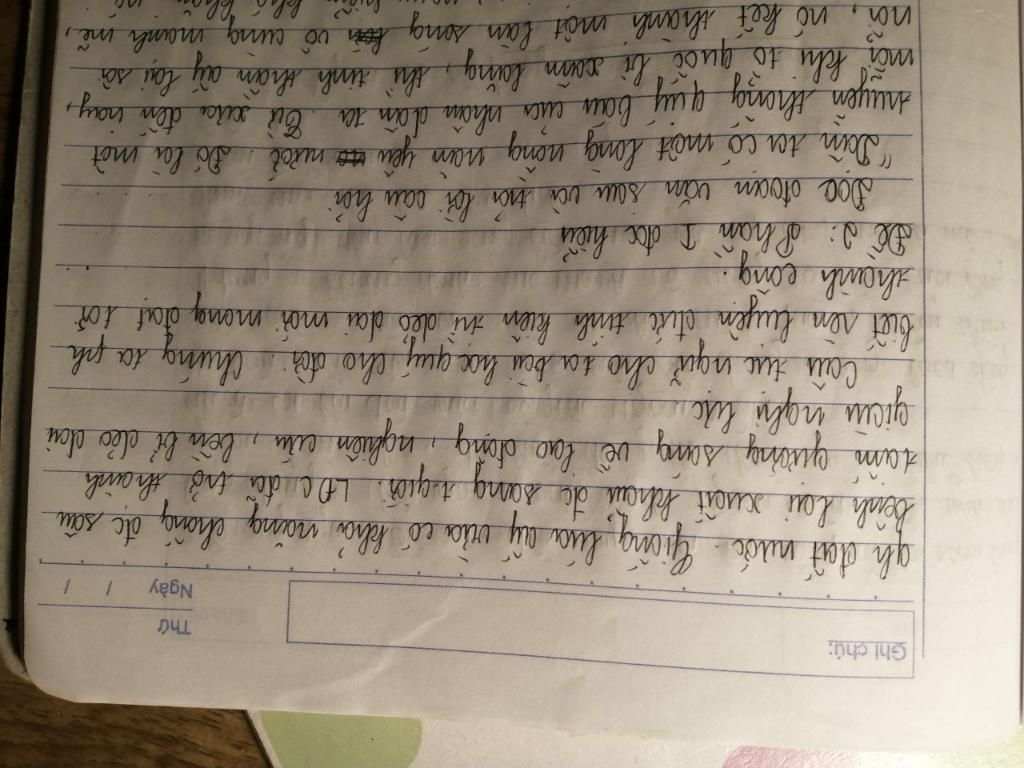 Ghi chú:
Thứ
Ngày / /
qh đất nước. Giống lúa ấy vừa có khả năng chống đc sâu
bệnh lại xuất khẩu đc sang tgiới. LĐC đã trở thành
tấm gương sáng về lao động, nghiên cứu, bền bỉ dẻo dai
giàu nghị lực
Câu tục ngữ cho ta bài học quý cho đời. Chúng ta ph
biết rèn luyện đức tính kiên trì dẻo dai mới mong đạt tới
thành công.
Đề 2: Phần I đọc hiểu
Đọc đoạn văn sau và trả lời câu hỏi
"Dân ta có một lòng nồng nàn yêu nước. Đó là một
truyền thống quý báu của nhân dân ta. Từ xưa đến nay,
mỗi khi tổ quốc bị xâm lăng, thì tinh thần ấy lại sôi
nổi, nó kết thành một làn sóng vô cùng mạnh mẽ,